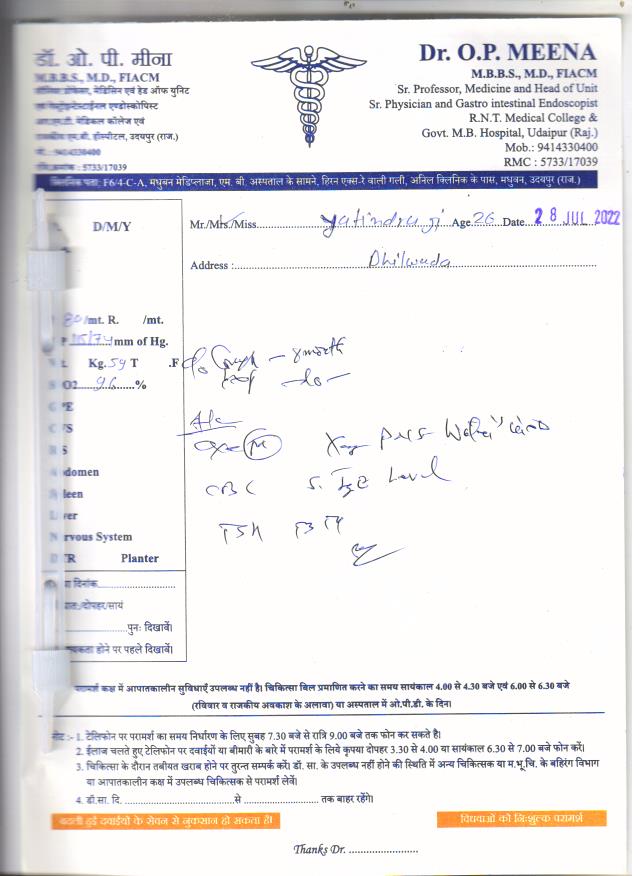 डॉ. ओ. पी. मीना
M.B.B.S., M.D., FIACM
प्रोफेसर, मेडिसिन एवं हेड ऑफ युनिट
एण्डोस्कोपिस्ट
मेडिकल कॉलेज एवं
हॉस्पीटल, उदयपुर (राज.)
: 9414330400
: 5733/17039
Dr. O.P. MEENA
M.B.B.S., M.D., FIACM
Sr. Professor, Medicine and Head of Unit
Sr. Physician and Gastro intestinal Endoscopist
R.N.T. Medical College &
Govt. M.B. Hospital, Udaipur (Raj.)
Mob.: 9414330400
RMC : 5733/17039
क्लिनिक पता: F6/4-C-A, मधुबन मेडिप्लाजा, एम. बी. अस्पताल के सामने, हिरन एक्स-रे वाली गली, अनिल क्लिनिक के पास, मधुवन, उदयपुर (राज.)
D/M/Y
Mr./Mrs./Miss Yatindra ji Age 26 Date 28 JUL 2022
Address : Bhilwada
80/mt. R. /mt.
115/74/mm of Hg.
Kg. 54 T .F
O2 96 %
C/o Cough - month
-do-
X-ray PNS
CBC S. IgE Level
TSH T3 T4
domen
leen
ver
rvous System
R Planter
दिनांक
/दोपहर/सायं
पुनः दिखावें।
होने पर पहले दिखावें।
परामर्श कक्ष में आपातकालीन सुविधाएँ उपलब्ध नहीं है। चिकित्सा बिल प्रमाणित करने का समय सायंकाल 4.00 से 4.30 बजे एवं 6.00 से 6.30 बजे
(रविवार व राजकीय अवकाश के अलावा) या अस्पताल में ओ.पी.डी. के दिन।
नोट :- 1. टेलिफोन पर परामर्श का समय निर्धारण के लिए सुबह 7.30 बजे से रात्रि 9.00 बजे तक फोन कर सकते है।
2. ईलाज चलते हुए टेलिफोन पर दवाईयों या बीमारी के बारे में परामर्श के लिये कृपया दोपहर 3.30 से 4.00 या सायंकाल 6.30 से 7.00 बजे फोन करें।
3. चिकित्सा के दौरान तबीयत खराब होने पर तुरन्त सम्पर्क करें। डॉ. सा. के उपलब्ध नहीं होने की स्थिति में अन्य चिकित्सक या म.भू.चि. के बहिरंग विभाग
या आपातकालीन कक्ष में उपलब्ध चिकित्सक से परामर्श लेवें।
4. डॉ.सा. दि. से तक बाहर रहेंगे।
बदली हुई दवाईयों के सेवन से नुकसान हो सकता है।
विधवाओं को निःशुल्क परामर्श
Thanks Dr.